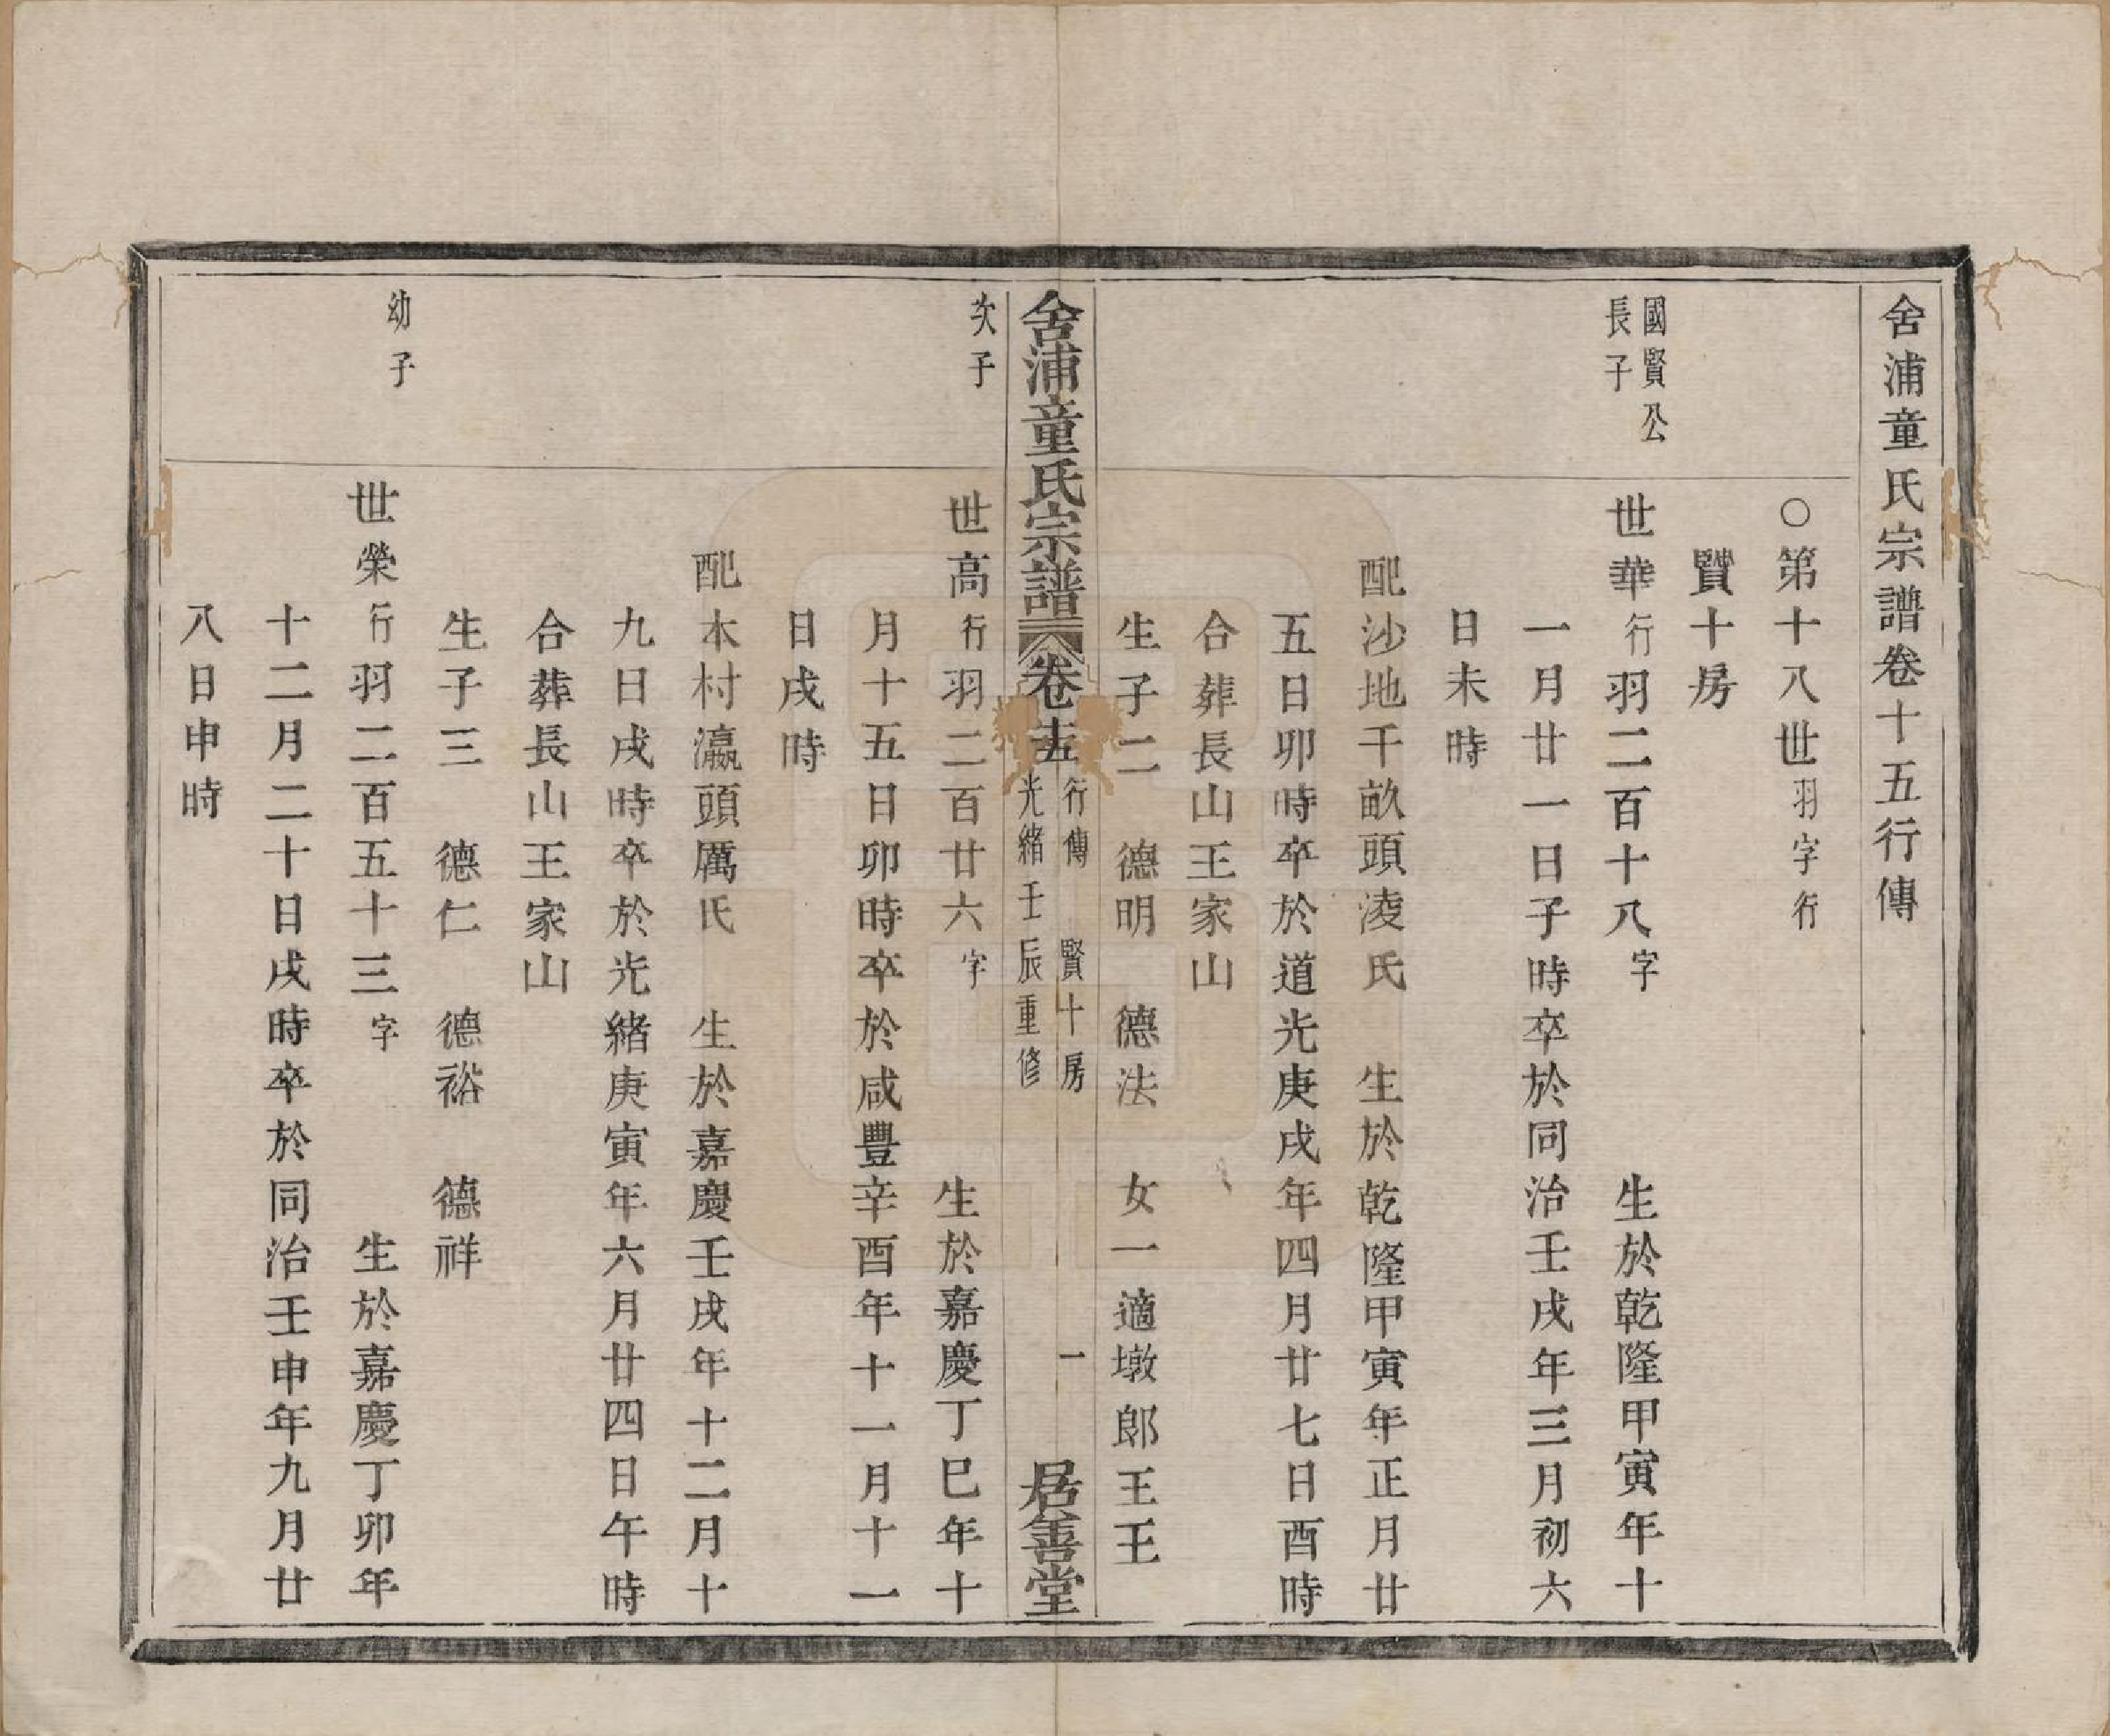 舍浦童氏宗譜卷十五行傳
○第十八世羽字行
賢十房
國賢公
長子
世華行羽二百十八字　生於乾隆甲寅年十
一月廿一日子時卒於同治壬戌年三月初六
日未時
配沙地千畝頭淩氏　生於乾隆甲寅年正月廿
五日卯時卒於道光庚戌年四月廿七日酉時
合葬長山王家山
生子二　德明　德法　女一適墩郎王王
舍浦童氏宗譜　卷十五　行傳　賢十房　一　居善堂
光緒壬辰重修
次子
世高行羽二百廿六字　生於嘉慶丁巳年十
月十五日卯時卒於咸豐辛酉年十一月十一
日戌時
配木村瀛頭厲氏　生於嘉慶壬戌年十二月十
九日戌時卒於光緒庚寅年六月廿四日午時
合葬長山王家山
生子三　德仁　德裕　德祥
幼子
世榮行羽二百五十三字　生於嘉慶丁卯年
十二月二十日戌時卒於同治壬申年九月廿
八日申時